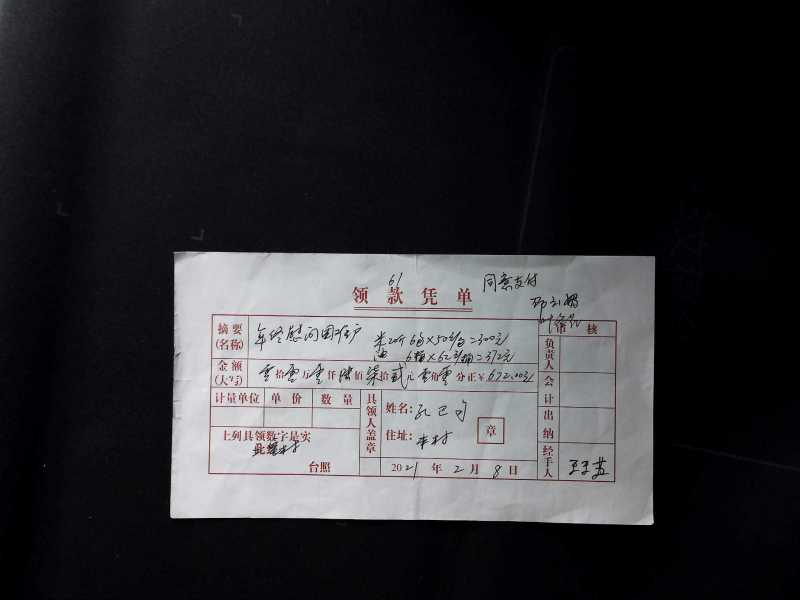 61
领款凭单
同意支付
摘要
(名称)
年终慰问困难户
米20斤 6袋×50元/袋=300元
油 6桶×62元/桶=372元
审核
负责人
金额
(大写)
零拾零万零仟陆佰柒拾贰元零角零分正¥672.00元
会计
计量单位 单价 数量
具领人盖章
姓名:
章
住址:本村
出纳
上列具领数字是实
此据
台照
2021年2月8日
经手人